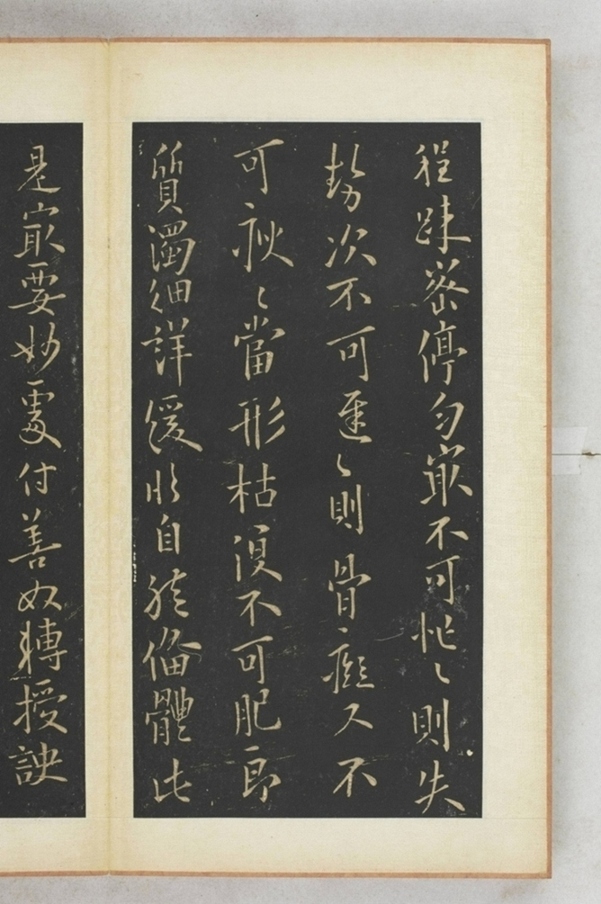 程踈密停勻㝡不可忙〻則失
勢次不可遲〻則骨癡又不
可瘦〻當形枯復不可肥即
質濁細詳緩臨自然備體此
是㝡要妙處付善奴轉授訣